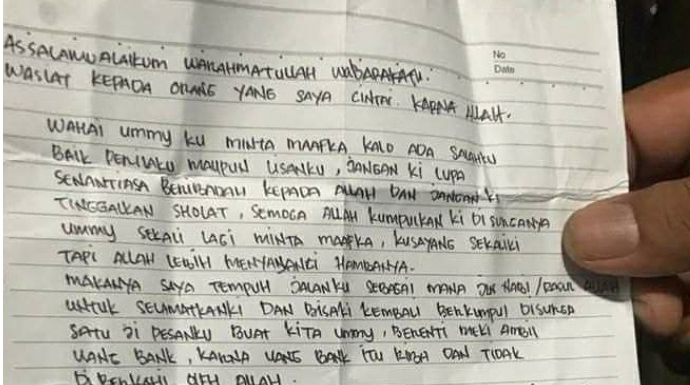 No
Date
ASSALAMUALAIKUM WARAHMATULLAH WABARAKATU.
WASIAT KEPADA ORANG YANG SAYA CINTAI KARNA ALLAH.
WAHAI UMMY KU MINTA MAAFKA KALO ADA SALAHKU
BAIK PERILAKU MAUPUN LISANKU, JANGAN KI LUPA
SENANTIASA BERIBADAH KEPADA ALLAH DAN JANGAN KI
TINGGALKAN SHOLAT, SEMOGA ALLAH KUMPULKAN KI DI SURGANYA
UMMY SEKALI LAGI MINTA MAAFKA, KUSAYANG SEKALIKI
TAPI ALLAH LEBIH MENYAYANGI HAMBANYA.
MAKANYA SAYA TEMPUH JALANKU SEBAGAI MANA NABI / RASUL ALLAH
UNTUK SELAMATKANKI DAN BISAKI KEMBALI BERKUMPUL DISURGA
SATU JI PESANKU BUAT KITA UMMY, BERENTI MEKI AMBIL
UANG BANK, KARNA UANG BANK ITU RIBA DAN TIDAK
DI BERKAHI OLEH ALLAH.